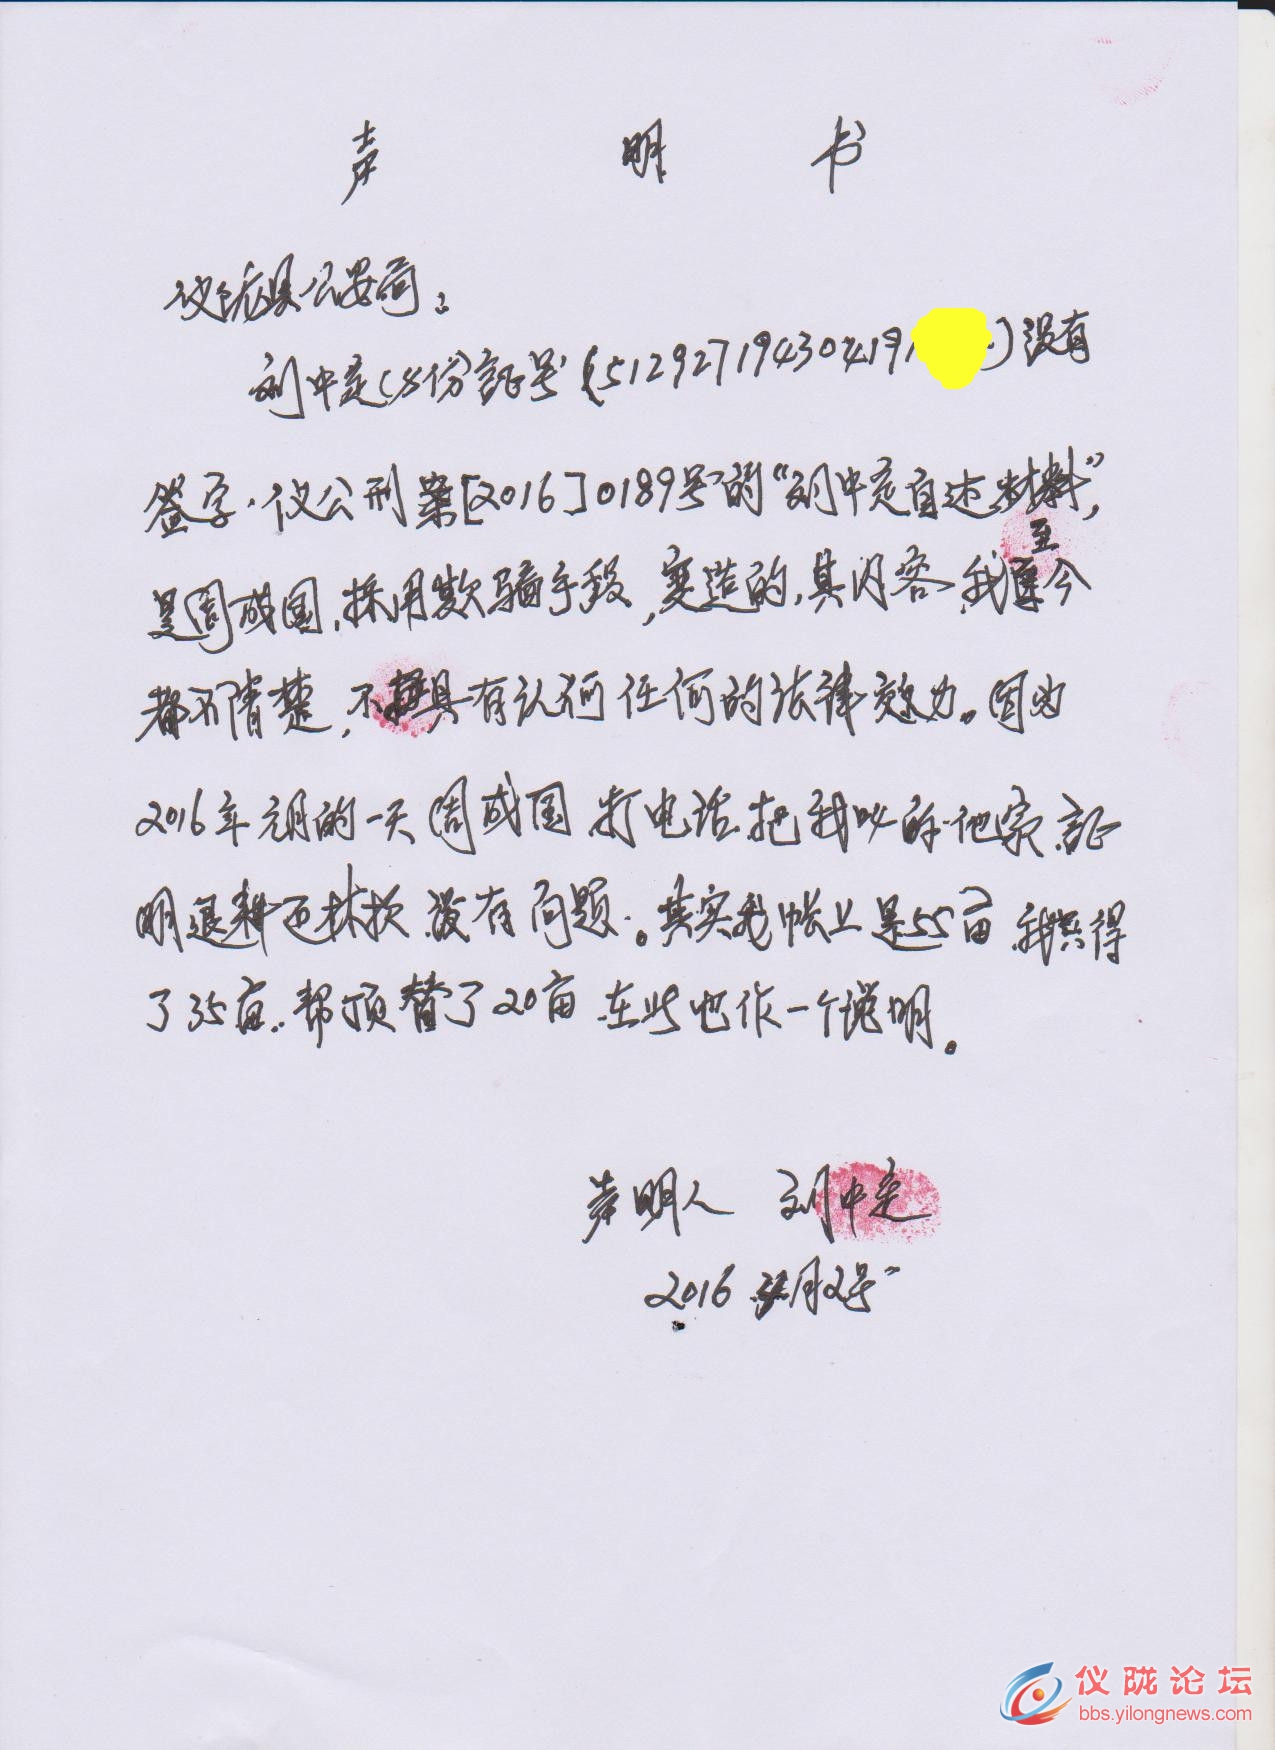 声明书
仪陇县公安局：
刘中定(身份)証号(512927194304191)没有
签字.仪公刑案[2016]0189号的“刘中定自述材料”，
是周成国，採用欺骗手段，变造的，其内容，我至今
都不清楚，不具有认何任何的法律效力。因为
2016年元月的一天周成国打电话把我叫的他家証
明退耕还林款没有问题。其实我帐上是55亩我只得
了35亩..帮顶替了20亩在此也作一个说明。
声明人 刘中定
2016 月2号
仪陇论坛
bbs.yilongnews.com